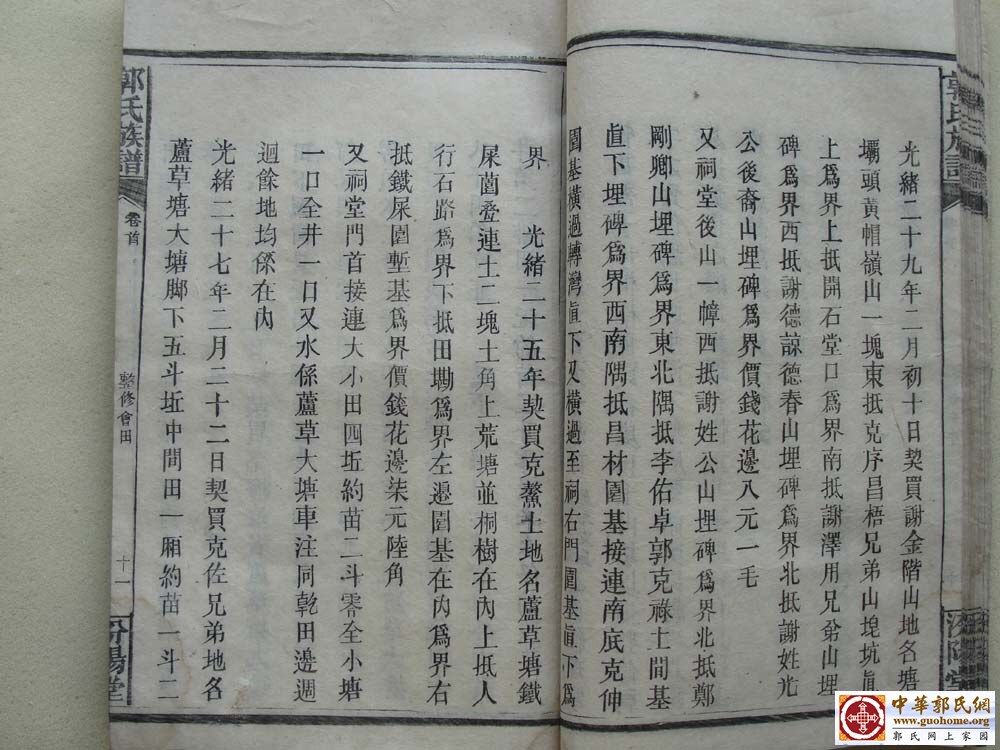 光緒二十九年二月初十日契買謝金階山地名塘
壩頭黃帽嶺山一塊東抵克序昌梧兄弟山埦坑眞
上爲界上抵開石堂口爲界南抵謝澤用兄弟山埋
碑爲界西抵謝德諒德春山埋碑爲界北抵謝姓光
公後裔山埋碑爲界價錢花邊八元一毛
又祠堂後山一幛西抵謝姓公山埋碑爲界北抵鄭
剛卿山埋碑爲界東北隅抵李佑卓郭克祿土間基
直下埋碑爲界西南隅抵昌材園基接連南底克伸
園基橫過轉灣直下又橫過至祠右門園基直下爲
界 光緒二十五年契買克鰲土地名蘆草塘鐵
屎菌叠連土二塊土角上荒塘並桐樹在內上抵人
行石路爲界下抵田墈爲界左邉園基在內爲界右
抵鐵屎園塹基爲界價錢花邊柒元陸角
又祠堂門首接連大小田四坵約苗二斗零全小塘
一口全井一口又水係蘆草大塘車注同乾田邊週
迴餘地均傺在內
光緒二十七年二月二十二日契買克佐兄弟地名
蘆草塘大塘脚下五斗坵中間田一厢約苗一斗二
郭氏族譜
卷首
整修會田
十一
汾陽堂
中華郭氏網
www.guohome.org
郭氏网上家园